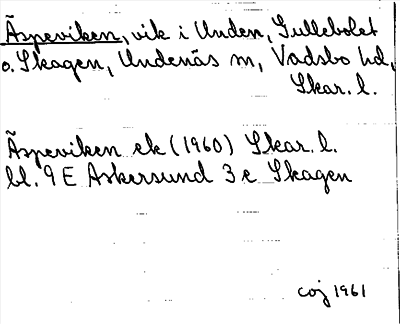 Äspeviken, vik i Unden, Gullebolet
o. Skagen, Undenäs sn, Vadsbo hd,
Skar. l.
Äspeviken ek (1960) Skar. l.
bl. 9 E Askersund 3 e Skagen
coj 1961